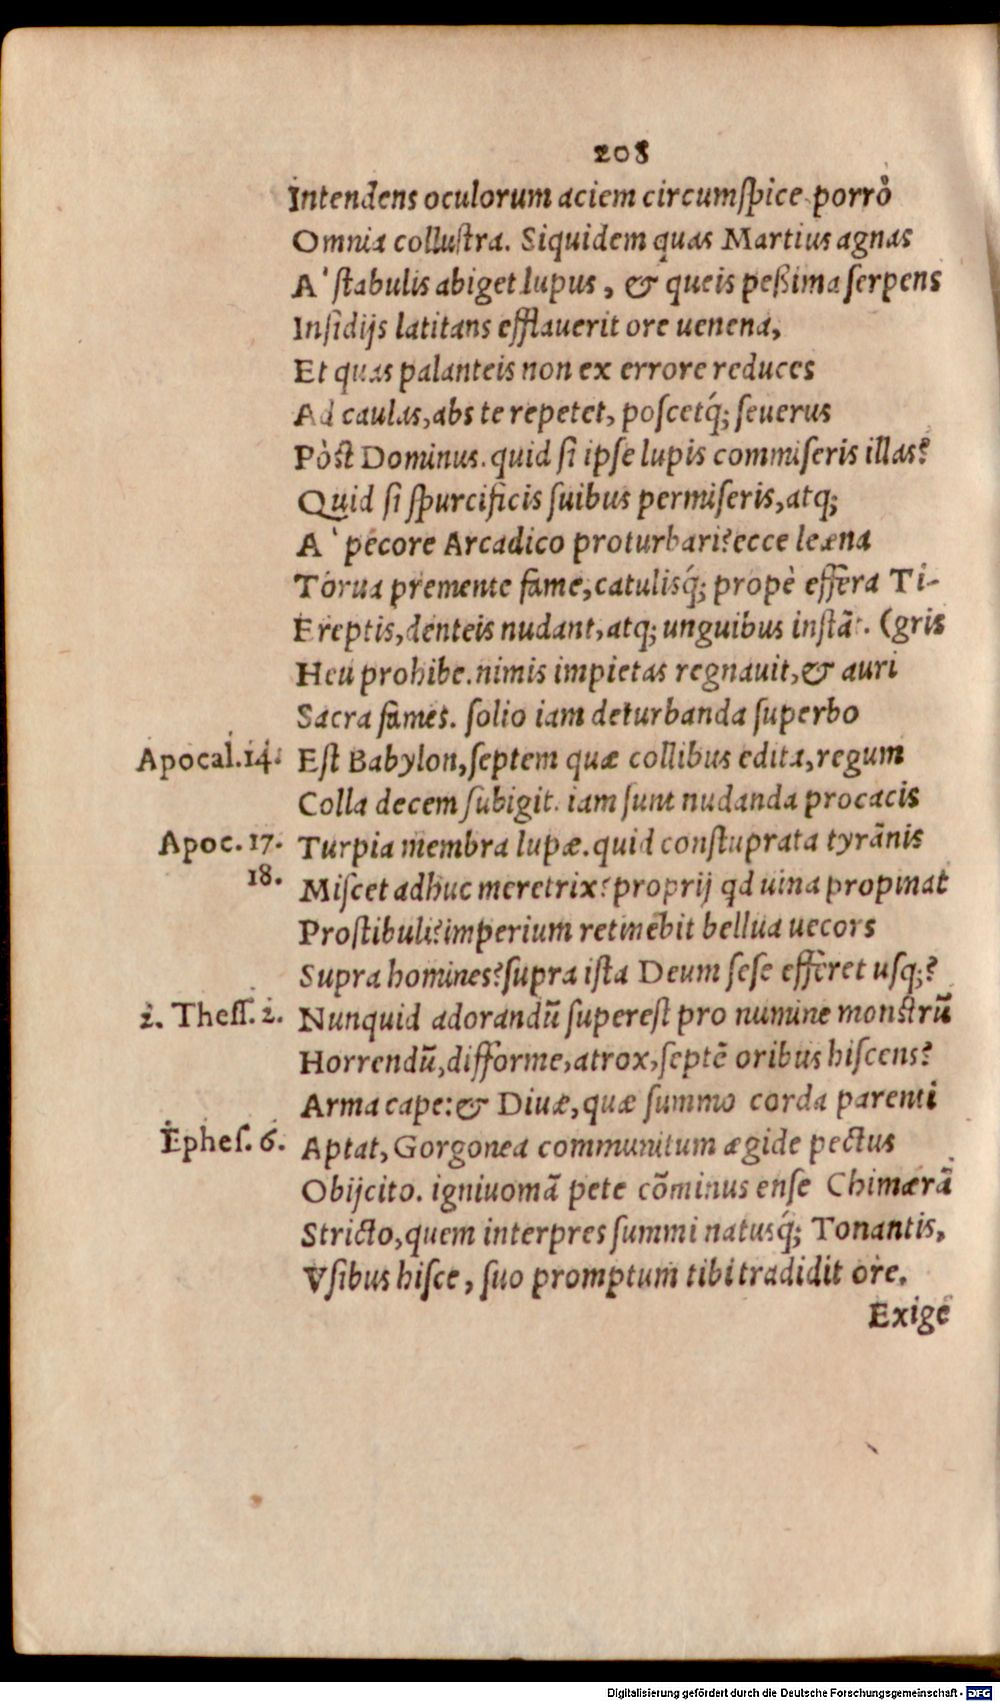 208
Intendens oculorum aciem circumſpice porrò
Omnia colluſtra. Siquidem quas Martius agnas
A' ſtabulis abiget lupus, & queis peßima ſerpens
Inſidijs latitans efflauerit ore uenena,
Et quas palanteis non ex errore reduces
Ad caulas, abs te repetet, poſcetq́; ſeuerus
Pòſt Dominus. quid ſi ipſe lupis commiſeris illas?
Quid ſi ſpurcificis ſuibus permiſeris, atq;
A' pecore Arcadico proturbari? ecce leæna
Torua premente fame, catulisq́; propè effera Ti-
Ereptis, denteis nudant, atq; unguibus inſtãt. (gris
Heu prohibe. nimis impietas regnauit, & auri
Sacra fames. ſolio iam deturbanda ſuperbo
Apocal. 14. Eſt Babylon, ſeptem quæ collibus edita, regum
Colla decem ſubigit. iam ſunt nudanda procacis
Apoc. 17. Turpia membra lupæ. quid conſtuprata tyrãnis
18. Miſcet adhuc meretrix? proprij qd uina propinat
Proſtibuli? imperium retinẽbit bellua uecors
Supra homines? ſupra iſta Deum ſeſe efferet uſq;?
2. Theſſ. 2. Nunquid adorandũ ſupereſt pro numine monſtrũ
Horrendũ, difforme, atrox, ſeptẽ oribus hiſcens?
Arma cape: & Diuæ, quæ ſummo corda parenti
Epheſ. 6. Aptat, Gorgonea communitum ægide pectus
Obijcito. igniuomã pete cõminus enſe Chimærã
Stricto, quem interpres ſummi natusq́; Tonantis,
Vſibus hiſce, ſuo promptum tibi tradidit ore.
Exige
Digitalisierung gefördert durch die Deutsche Forschungsgemeinschaft - DFG